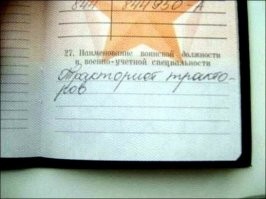 844 844950-А
27. Наименование воинской должности
и военно-учетной специальности
тракторист тракто-
ров